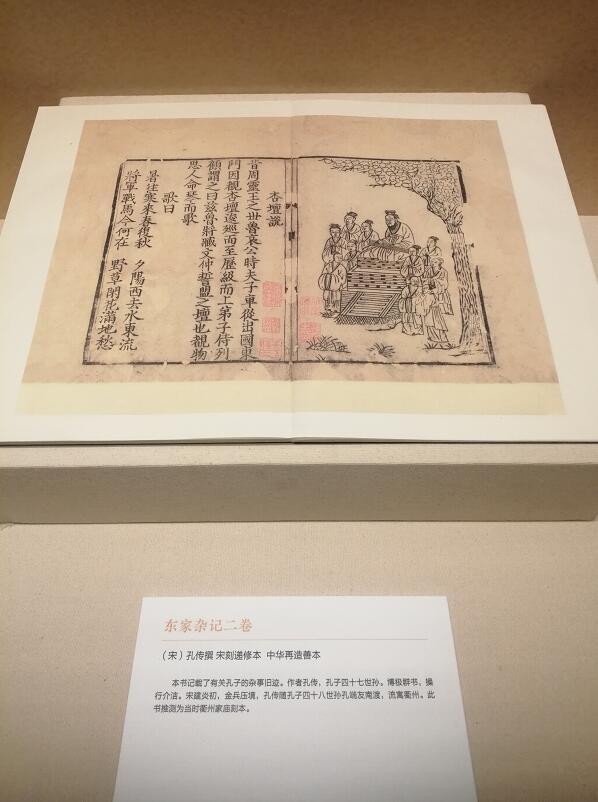 杏壇說
昔周靈王之世魯哀公時夫子車從出國東
門因覩杏壇逡巡而至歷級而上弟子侍列
顧謂之曰茲魯將臧文仲誓盟之壇也覩物
思人命琴而歌
歌曰
暑往寒來春復秋 夕陽西去水東流
將軍戰馬今何在 野草閑花滿地愁
东家杂记二卷
（宋）孔传撰 宋刻递修本 中华再造善本
本书记载了有关孔子的杂事旧迹。作者孔传，孔子四十七世孙。博极群书，操
行介洁。宋建炎初，金兵压境，孔传随孔子四十八世孙孔端友南渡，流寓衢州。此
书推测为当时衢州家庙刻本。